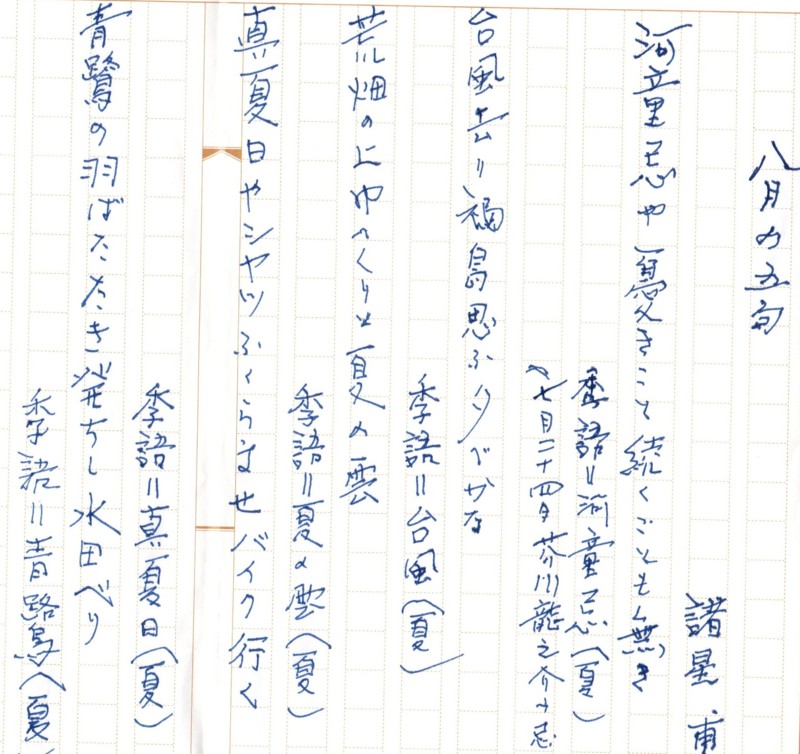 八月の五句
諸星
河童忌や憂きこと続くごとも無き
季語=河童忌(夏)
(七月二十四日芥川龍之介の忌
台風去り福島思ふ夕べかな
季語=台風(夏)
荒畑の上ゆっくりと夏の雲
季語=夏の雲(夏)
真夏日やシャツふくらませバイク行く
季語=真夏日(夏)
青鷺の羽ばたたき発ちし水田べり
季語=青鷺(夏